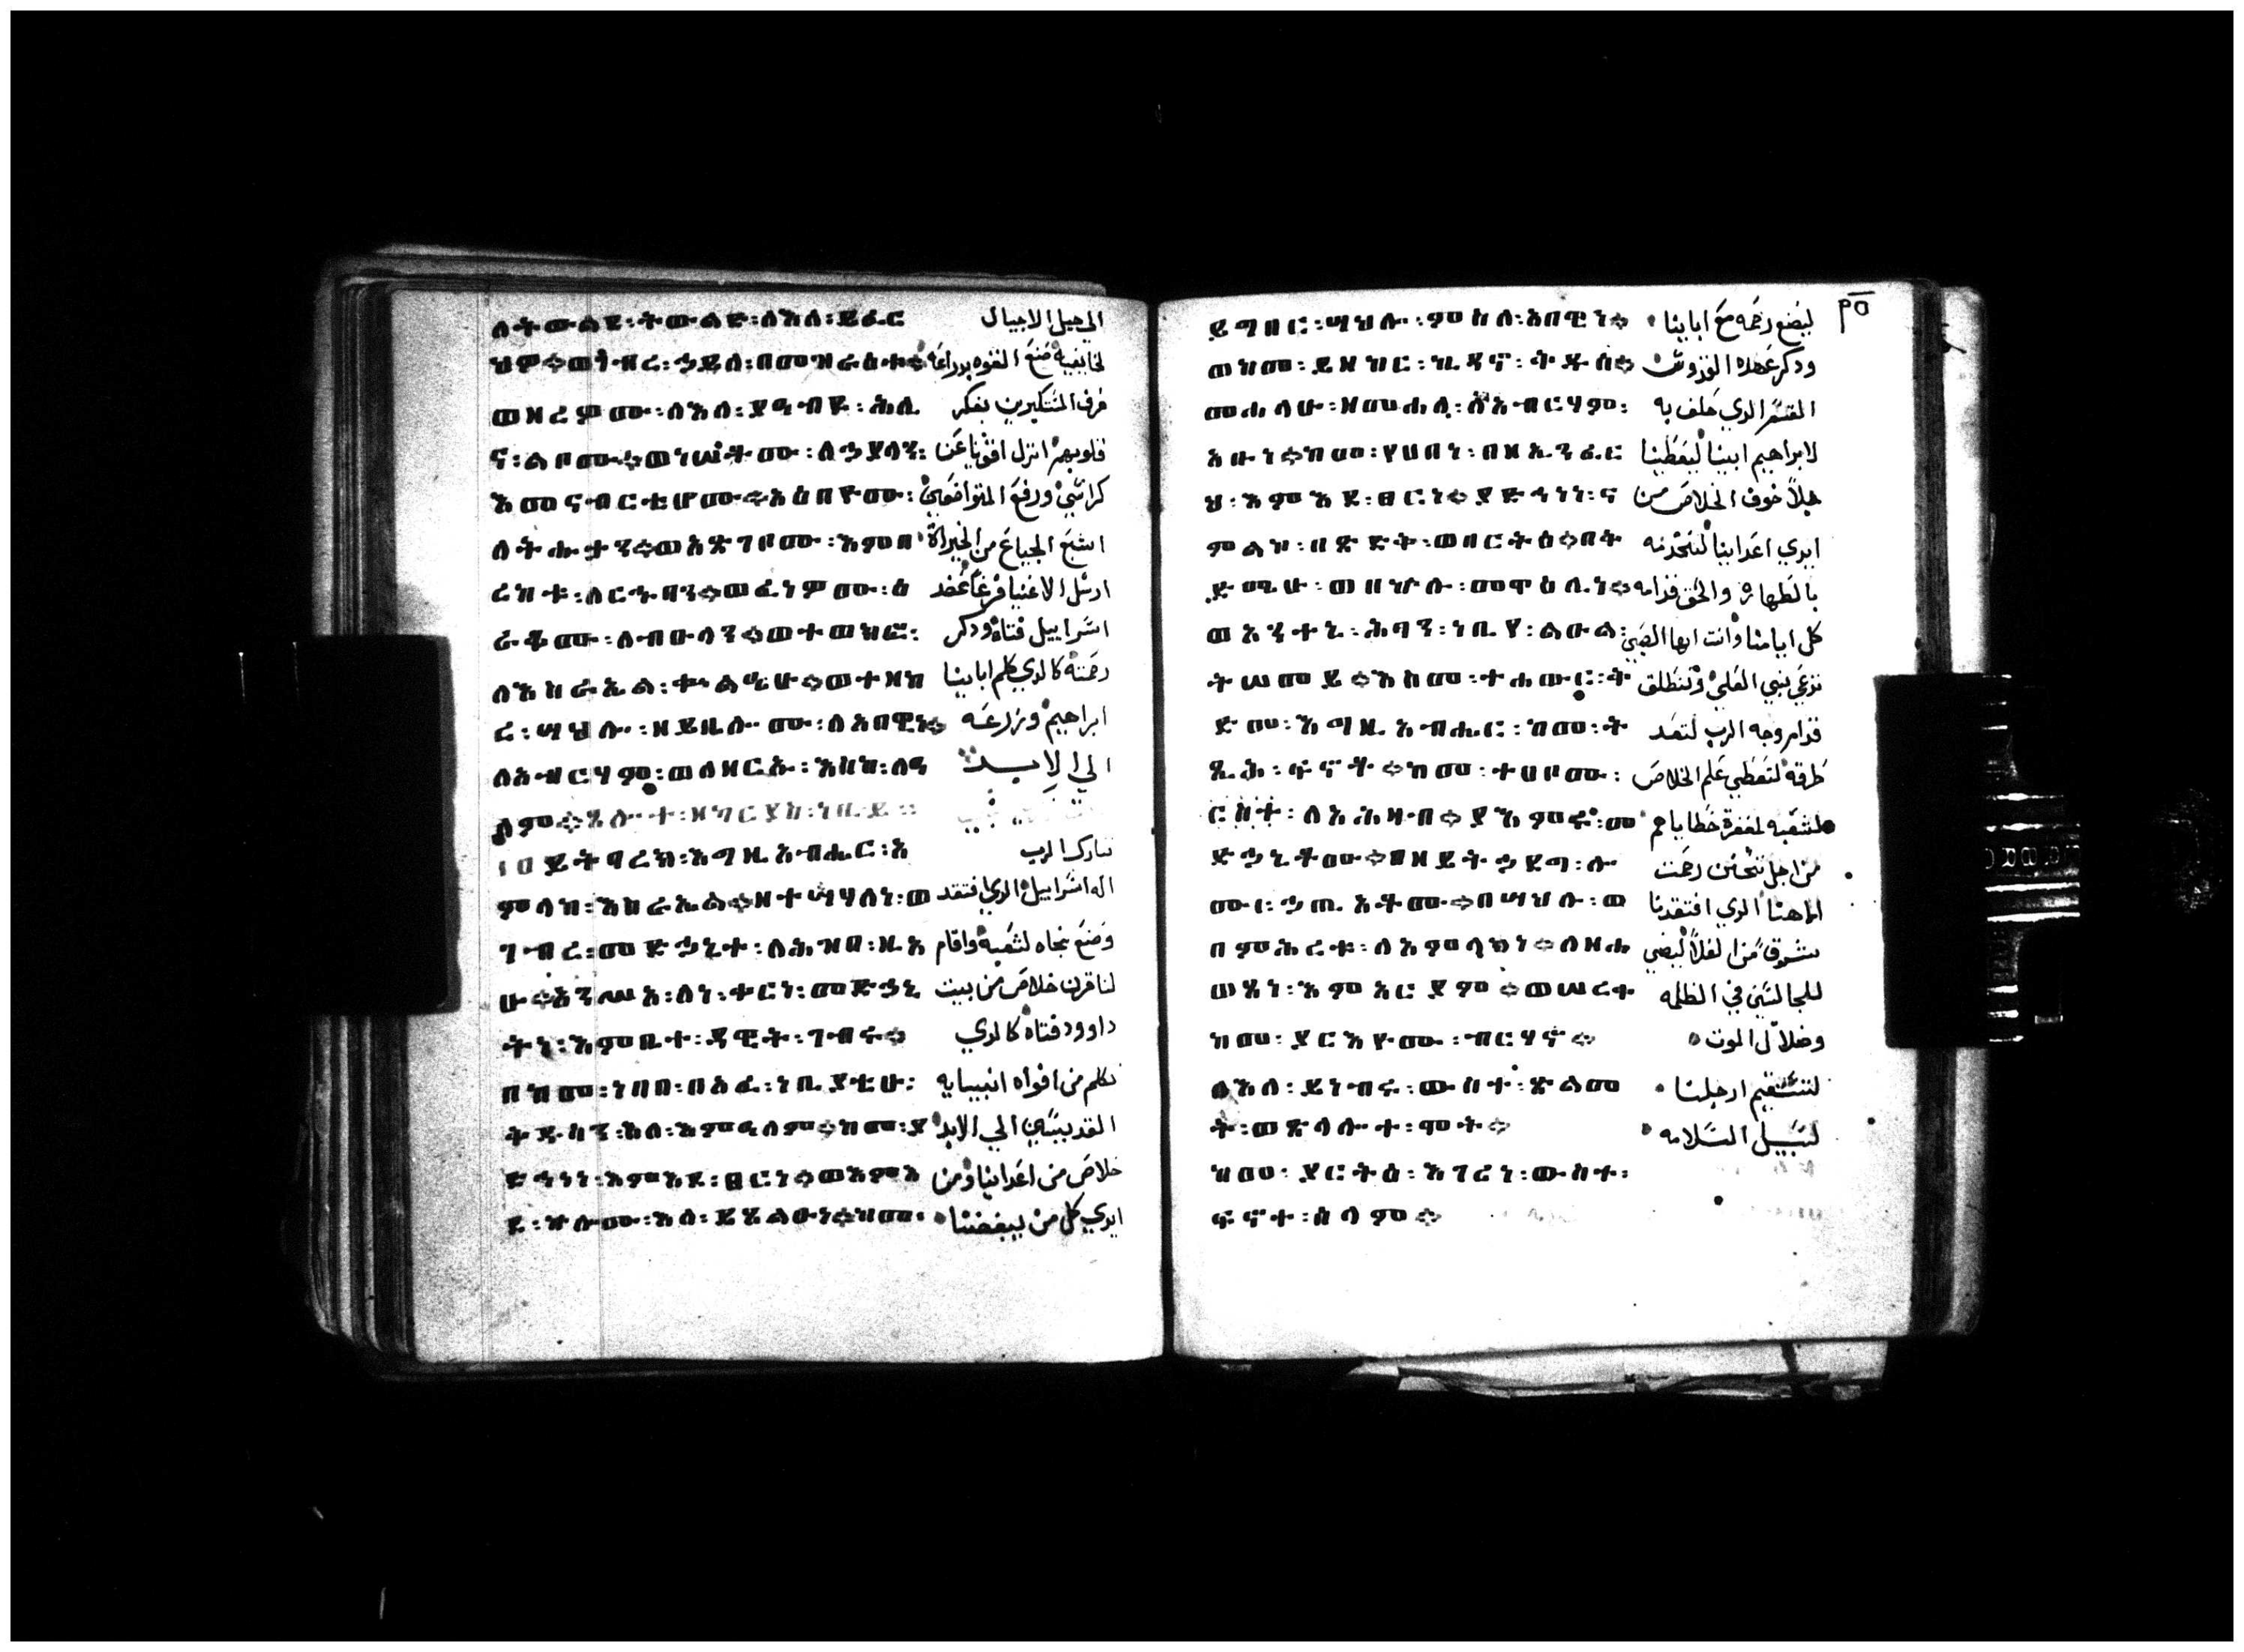 ለትውልደ፡ትውልድ፡ለእለ፡ይፈር الي جيل الاجيال
ህዎ፨ወገብረ፡ኃይለ፡በመዝራዕቱ፨ لخايفيه صنع القوه بدراعه
ወዘረዎሙ፡ለእለ፡ያዔብዩ፡ሕሊ فرق المتكبرين بفكر
ና፡ልቦሙ፨ወነሠቶሙ፡ለኃያላን፡ قلوبهم انزل اقويا عن
እመናብርቲሆሙ፨አዕበዮሙ፡ كراسي ورفع المتواضعين
ለትሑታን፨ወአጽገቦሙ፡እምበ اشبع الجياع من الخيراة
ረከቱ፡ለርኁባን፨ወፈነዎሙ፡ዕ ارسل الاغنيا فرغا عضد
ራቆሙ፡ለብዑላን፨ወተወክፎ፡ اسراييل فتاه ودكر
ለእስራኤል፡ቍልዔሁ፨ወተዘከ رحمته كالدي كلم ابايينا
ረ፡ሣህሉ፡ዘይቤሎሙ፡ለአበዊነ፨ ابراهيم وزرعه
ለአብርሃም፡ወለዘርኡ፡እስከ፡ለዓ الي الابد
ለም፨ጸሎተ፡ዘካርያስ፡ነቢይ፡
ይትባረክ፡እግዚአብሔር፡አ تبارك الرب
ምላከ፡እስራኤል፨ዘተሣሃለነ፡ወ اله اسراييل الدي افتقد
ገብረ፡መድኃኒተ፡ለሕዝበ፡ዚአ وصنع نجاه لشعبه واقام
ሁ፨አንሥአ፡ለነ፡ቀርነ፡መድኃኒ لنا قرن خلاص من بيت
ትነ፡እምቤተ፡ዳዊት፡ገብሩ፨ داوود فتاه كالدي
በከመ፡ነበበ፡በአፈ፡ነቢያቲሁ፡ تكلم من افواه انبيايه
ቅዱሳን፡እለ፡እምዓለም፨ከመ፡ያ القديسين الي الابد
ድኅነነ፡እምእደ፡ፀርነ፨ወእምእ خلاص من اعداينا ومن
ደ፡ኵሎሙ፡እለ፡ይጸልዑነ፨ከመ፡ ايدي كل من يبغضنا
ይግበር፡ሣህሉ፡ምስለ፡አበዊነ፨ ليضع رحمه مع ابايينا
ወከመ፡ይዘከር፡ኪዳኖ፡ቅዱሰ፨ ودكر عهده القدوس
መሐላሁ፡ዘመሐለ፡ለአብርሃም፡ القسم الدي حلف به
አቡነ፨ከመ፡የሀበነ፡በዘኢንፈር لابراهيم ابينا ليعطينا
ህ፡እምእደ፡ፀርነ፨ያድኅነነ፡ና بلا خوف الخلاص من
ምልኮ፡በጽድቅ፡ወበርትዕ፨በቅ ايدي اعداينا لنخدمه
ድሜሁ፡ወበኵሉ፡መዋዕሊነ፨ بالطهاره والحق قدامه
ወአንተኒ፡ሕፃን፡ነቢየ፡ልዑል፡ كل ايامنا وانت ايها الصبي
ትሠመይ፨እስመ፡ተሐውር፡ቅ تدعي نبي العلي وتنطلق
ድመ፡እግዚአብሔር፡ከመ፡ት قدام وجه الرب لتعد
ጺሕ፡ፍኖቶ፨ከመ፡ተሀቦሙ፡ طرقه لتعطي علم الخلاص
ርከተ፡ለአሕዛብ፨ያእምሩ፡መ لشعبه لمغفرة خطاياهم
ድኃኒቶሙ፨በዘይትኃደግ፡ሎ من اجل تحنن رحمت
ሙ፡ኃጢአቶሙ፨በሣህሉ፡ወ الاهنا الدي افتقدنا
በምሕረቱ፡ለአምላክነ፨ለዘሐ بشرق من العلا ليضي
ወጸነ፡እምአርያም፨ወሠረቀ للجالسين في الظلمه
ከመ፡ያርእዮሙ፡ብርሃኖ፨ وضلال الموت
ለእለ፡ይነብሩ፡ውስተ፡ጽልመ لتستقيم ارجلنا
ት፡ወጽላሎተ፡ሞት፨ لسبيل السلامه
ከመ፡ያርትዕ፡እገሪነ፡ውስተ፡
ፍኖተ፡ሰላም፨